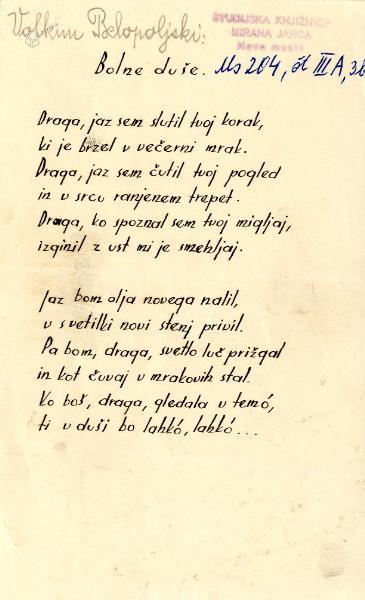 Volkun Belopoljski:
ŠTUDIJSKA KNJIŽNICA
MIRANA JARCA
Novo mesto
Bolne duše. Ms 204, št III A, 3.6
Draga, jaz sem slutil tvoj korak,
ki je brzel v večerni mrak.
Draga, jaz sem čutil tvoj pogled
in v srcu ranjenem trepet.
Draga, ko spoznal sem tvoj migljaj,
izginil z ust mi je smehljaj.
Jaz bom olja novega nalil,
v svetilki novi stenj privil.
Pa bom, draga, svetlo luč prižgal
in kot čuvaj v mrakovih stal.
Ko boš, draga, gledala v temó,
ti v duši bo lahkó, lahkó...